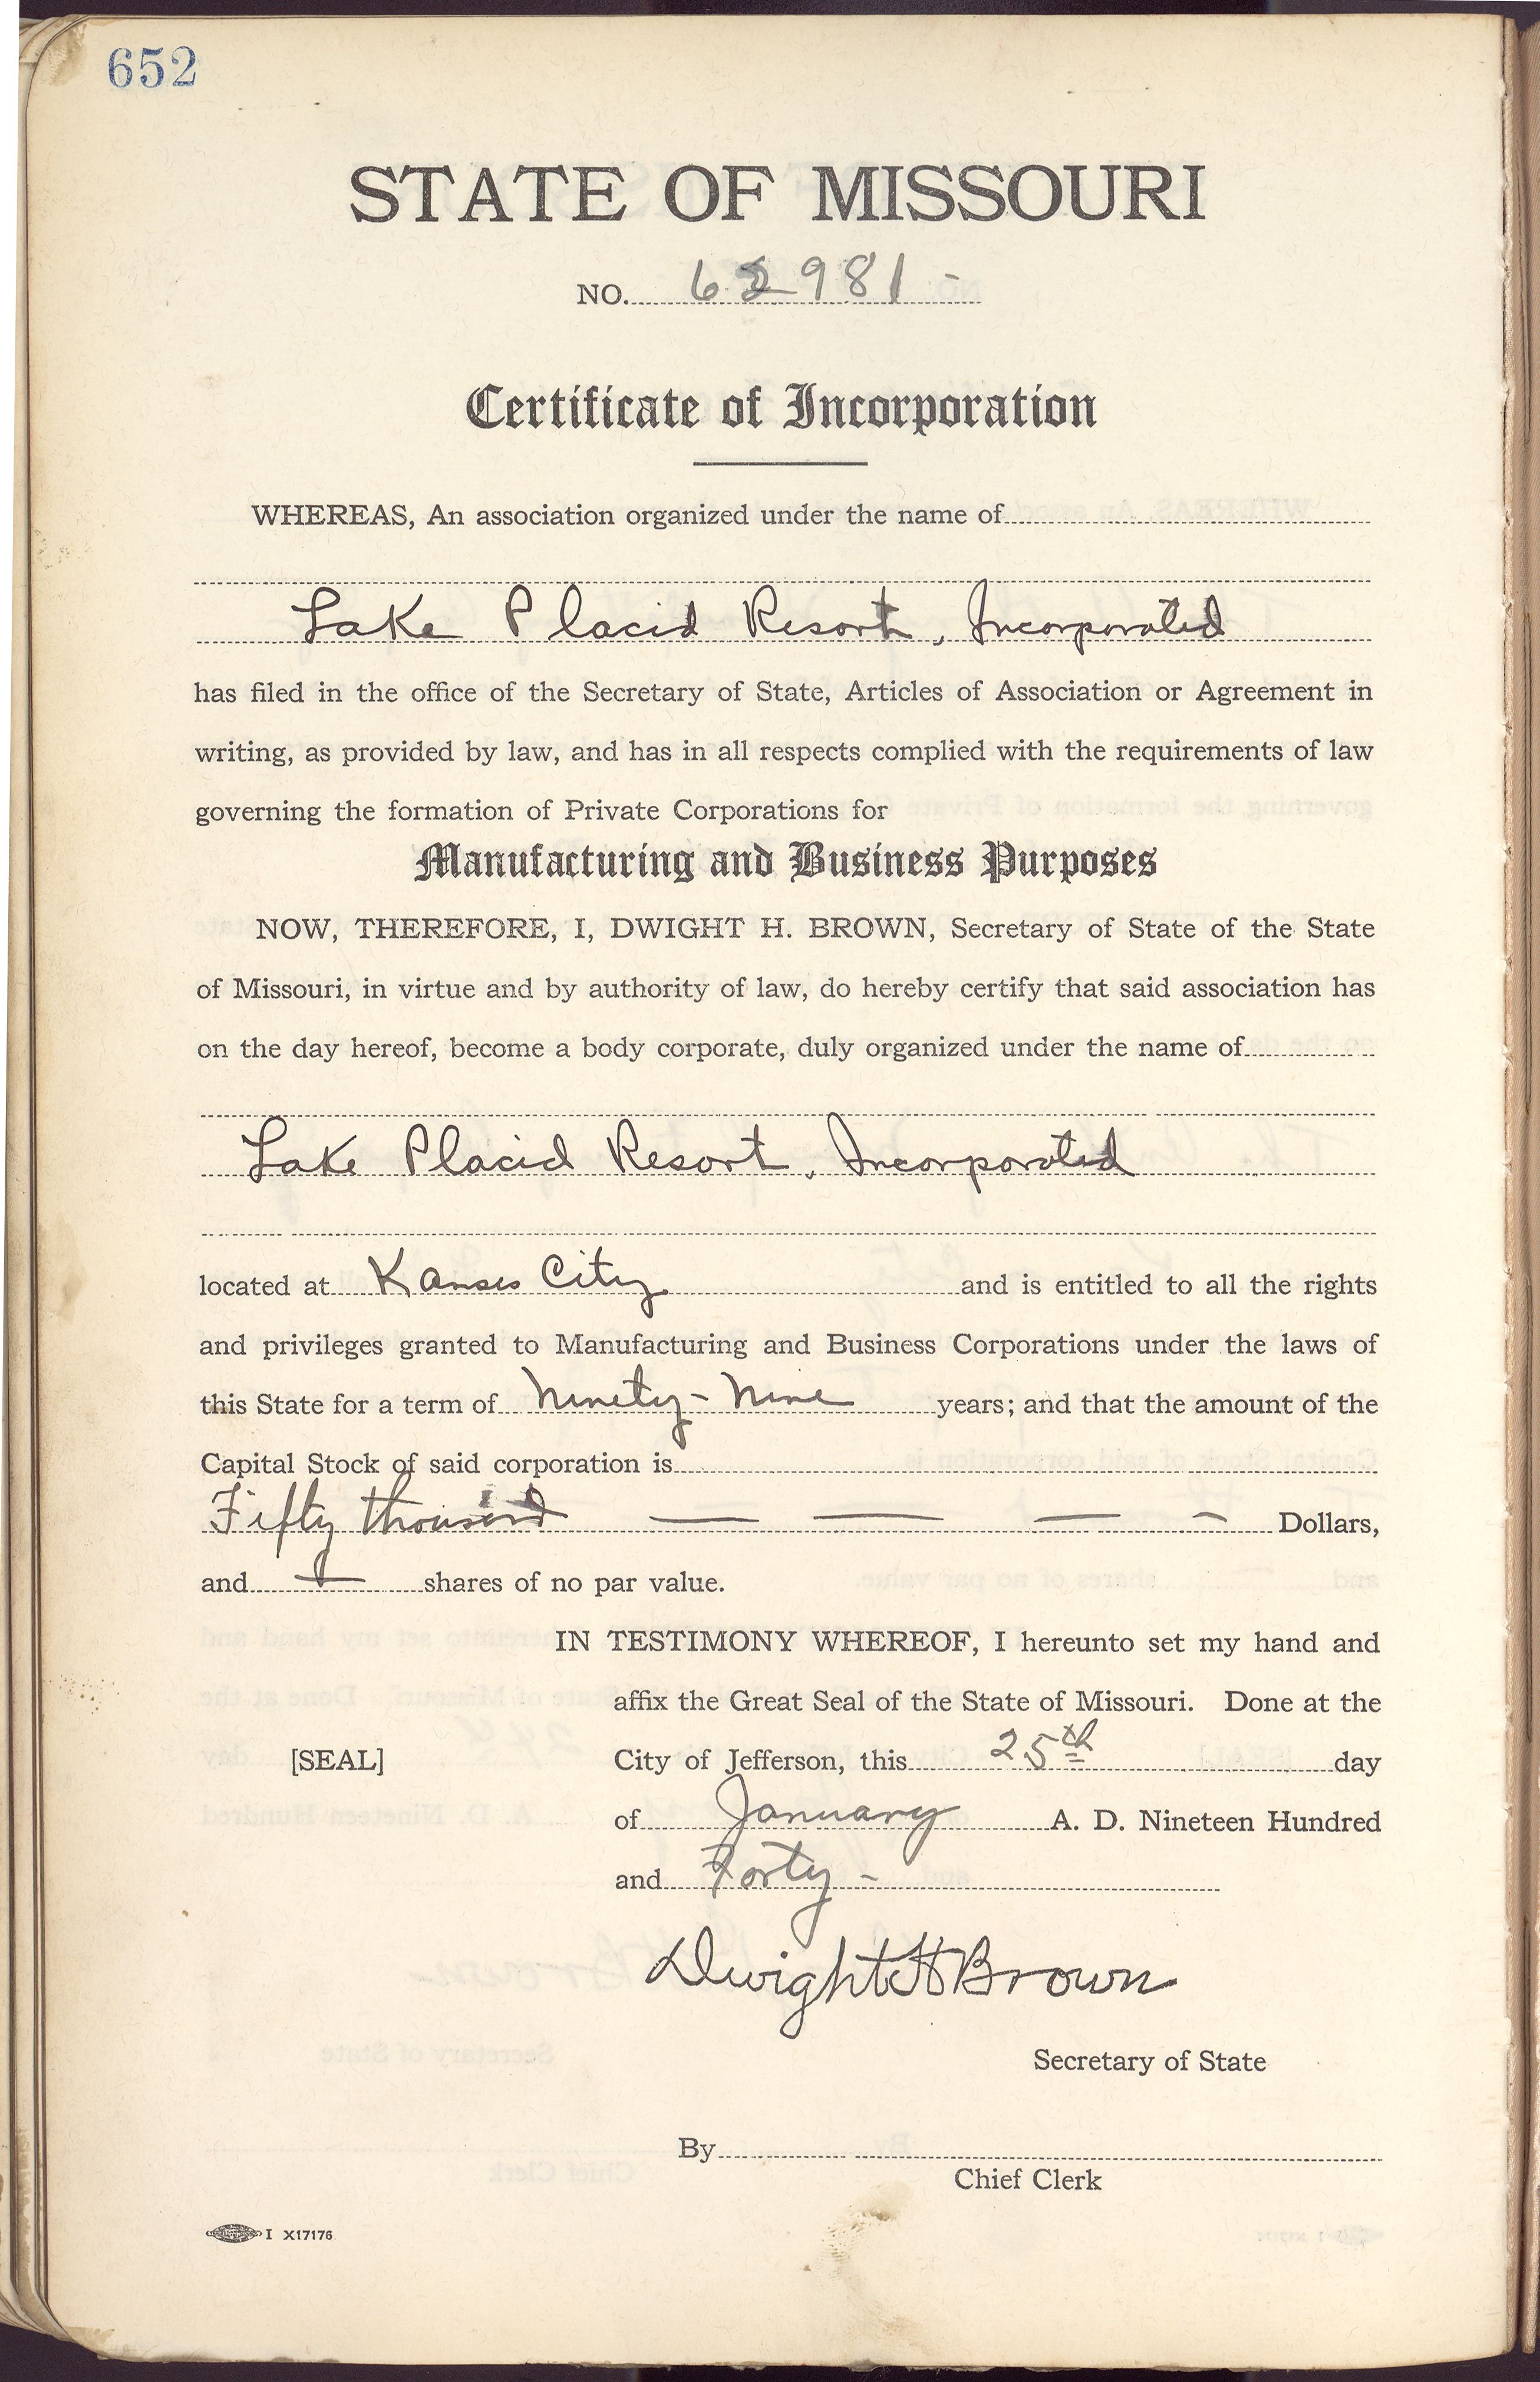 652
STATE OF MISSOURI
NO. 62981 -
Certificate of Incorporation
WHEREAS, An association organized under the name of
Lake Placid Resort, Incorporated
has filed in the office of the Secretary of State, Articles of Association or Agreement in
writing, as provided by law, and has in all respects complied with the requirements of law
governing the formation of Private Corporations for
Manufacturing and Business Purposes
NOW, THEREFORE, I, DWIGHT H. BROWN, Secretary of State of the State
of Missouri, in virtue and by authority of law, do hereby certify that said association has
on the day hereof, become a body corporate, duly organized under the name of
Lake Placid Resort, Incorporated
located at Kansas City and is entitled to all the rights
and privileges granted to Manufacturing and Business Corporations under the laws of
this State for a term of Ninety-Nine years; and that the amount of the
Capital Stock of said corporation is
Fifty thousand — — — — Dollars,
and — shares of no par value.
IN TESTIMONY WHEREOF, I hereunto set my hand and
affix the Great Seal of the State of Missouri. Done at the
[SEAL] City of Jefferson, this 25th day
of January A. D. Nineteen Hundred
and Forty -
Dwight H Brown
Secretary of State
By
Chief Clerk
I X17176